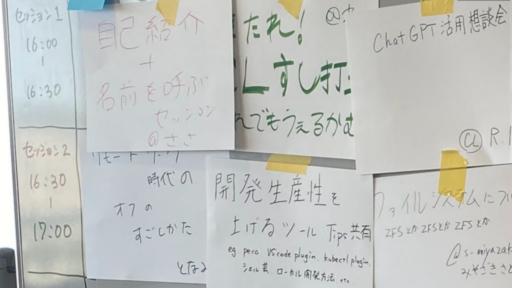 セッション1
16:00
-
16:30
自己紹介
+
名前を呼ぶ
セッション
@ささ
たれ!
すし打
でもうえるかむ
ChatGPT活用想談会
@R.I
セッション2
16:30
-
17:00
リモートワーク
時代の
オフの
すごしかた
となる
開発生産性を
上げるツール Tips共有
eg peco VScode plugin, kubectl plugin,
シェル芸 ローカル開発方法 etc
ファイルシステムにつ
ZFSとか ZFSとか ZFSとか
@s-miyaza
みやざきさと